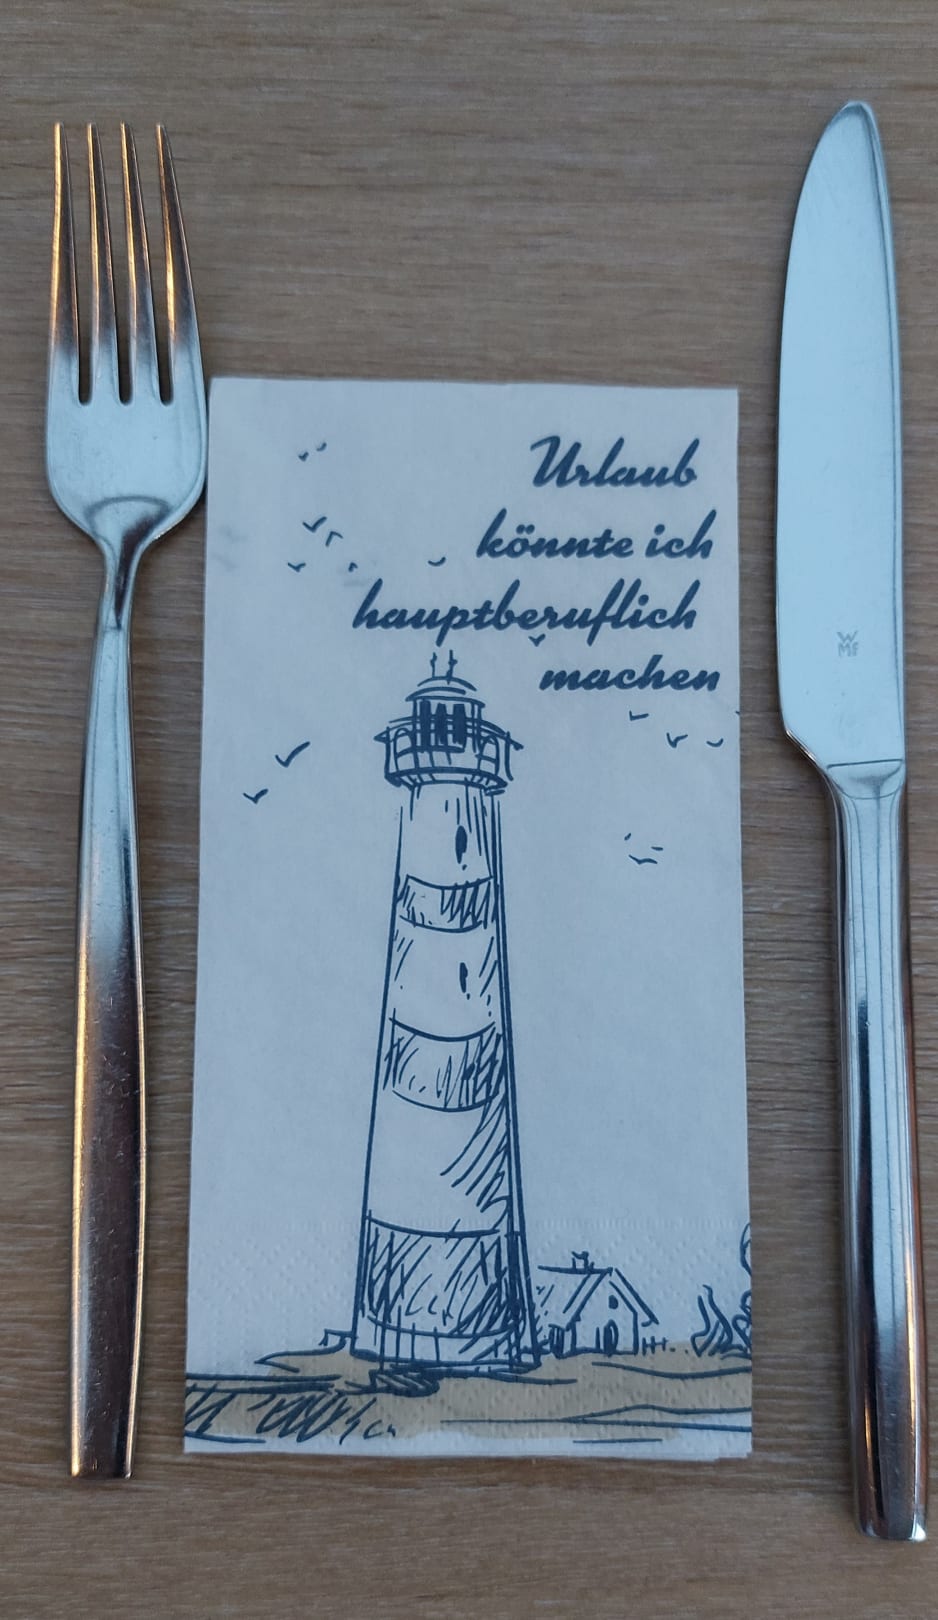 Urlaub
könnte ich
hauptberuflich
machen
WMF